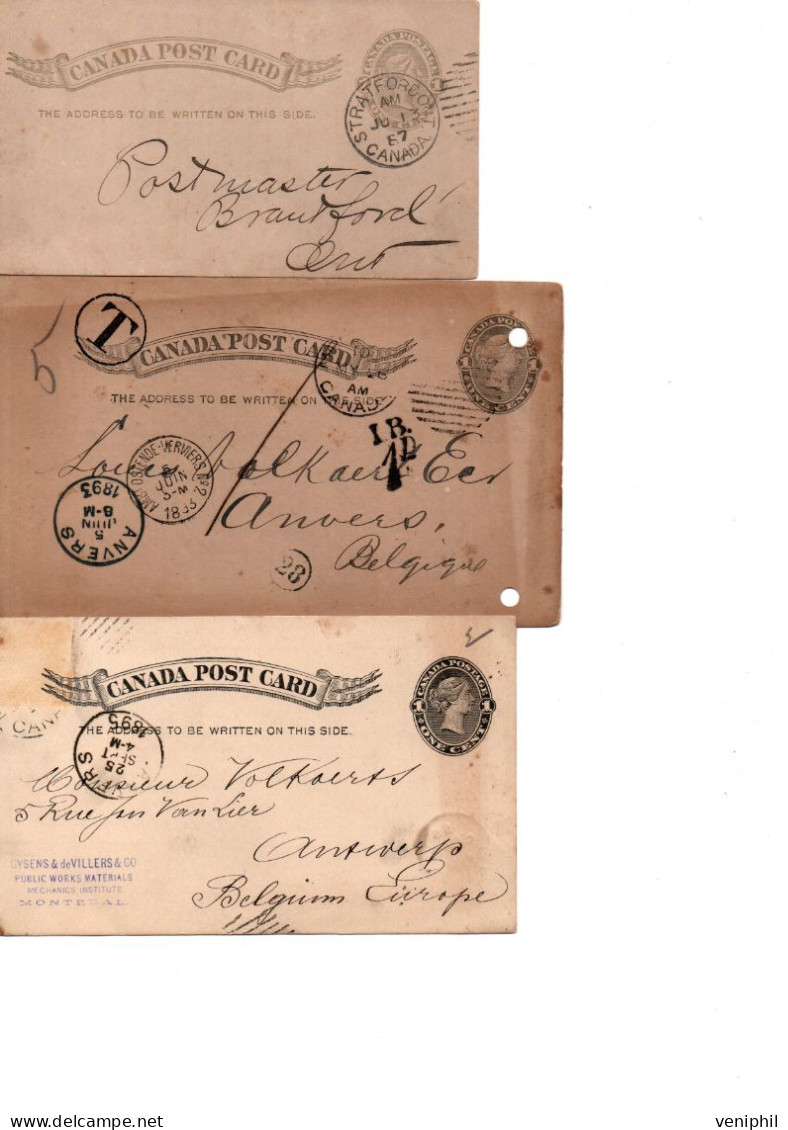 CANADA POST CARD
THE ADDRESS TO BE WRITTEN ON THIS SIDE.
CANADA POSTAGE
STRATFORD ONT
AM
JU 1
87
CANADA
Postmaster
Brantford
Ont
5
T
CANADA POST CARD
THE ADDRESS TO BE WRITTEN ON THIS SIDE
CANADA POSTAGE
1 1
ONE CENT
AM
CANADA
I B.
1D
Louis Volkaerts
Anvers,
Belgique
AMBT OSTENDE-VERVIERS No 2
5
JUIN
3-M
1893
ANVERS
5
JUIN
8-M
1893
28
CANADA POST CARD
THE ADDRESS TO BE WRITTEN ON THIS SIDE.
CANADA POSTAGE
1 1
ONE CENT
CANA
25
SEPT
4-M
1895
Monsieur Volkaerts
5 Rue Jan Van Lier
Antwerp
Belgium Europe
UYSENS & deVILLERS & CO
PUBLIC WORKS MATERIALS
MECHANICS INSTITUTE
MONTREAL
veniphil